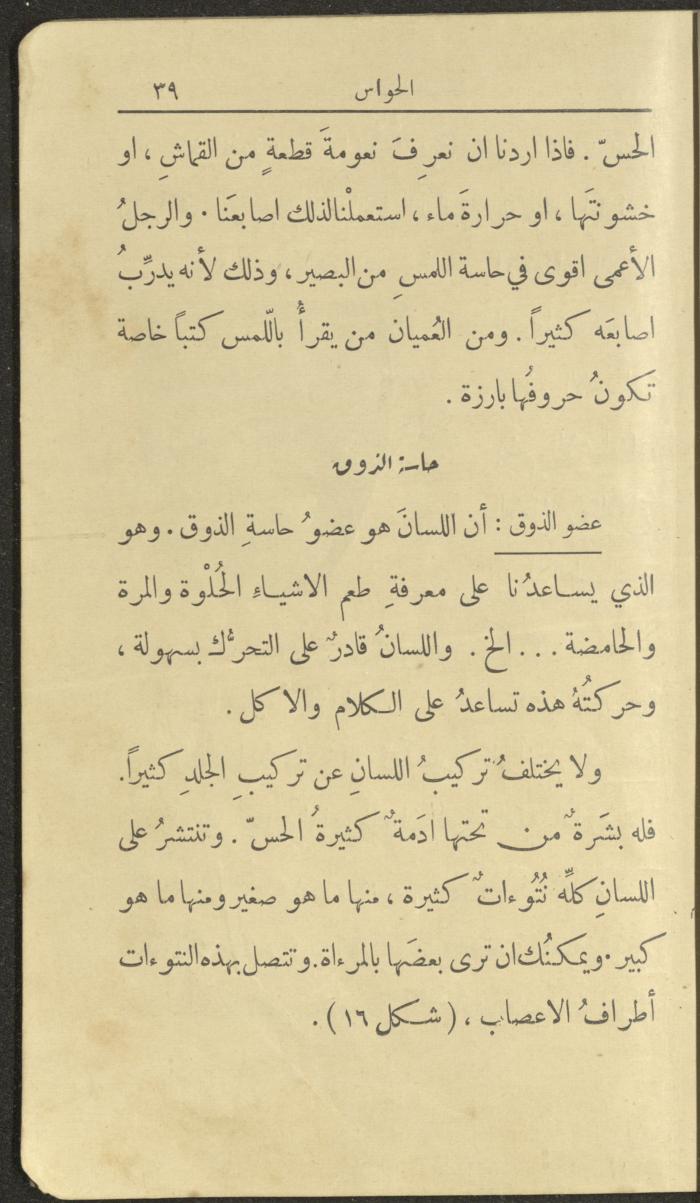 الحواس ٣٩
الحسّ . فاذا اردنا ان نعرِفَ نعومةَ قطعةٍ من القماشِ ، او
خشونتَها ، او حرارةَ ماء ، استعملْنالذلك اصابعَنا . والرجلُ
الأعمى اقوى في حاسة اللمسِ من البصير ، وذلك لأنه يدرِّبُ
اصابعَه كثيراً . ومن العُميان من يقرأُ باللّمس كتباً خاصة
تكونُ حروفُها بارزة .
حاسة الذوق
عضو الذوق : أن اللسانَ هو عضوُ حاسةِ الذوق . وهو
الذي يساعدُنا على معرفةِ طعم الاشياءِ الحُلْوة والمرة
والحامضة . . . الخ . واللسانُ قادرٌ على التحرُّك بسهولة ،
وحركتُهُ هذه تساعدُ على الكلام والاكل .
ولا يختلفُ تركيبُ اللسانِ عن تركيبِ الجلدِ كثيراً.
فله بشَرةٌ من تحتها ادَمةٌ كثيرةُ الحسّ . وتنتشرُ على
اللسانِ كلِّه نُتُوءاتٌ كثيرة ، منها ما هو صغير ومنها ما هو
كبير . ويمكنُك ان ترى بعضَها بالمرءاة . وتتصل بهذه النتوءات
أطرافُ الاعصاب ، ( شكل ١٦ ) .